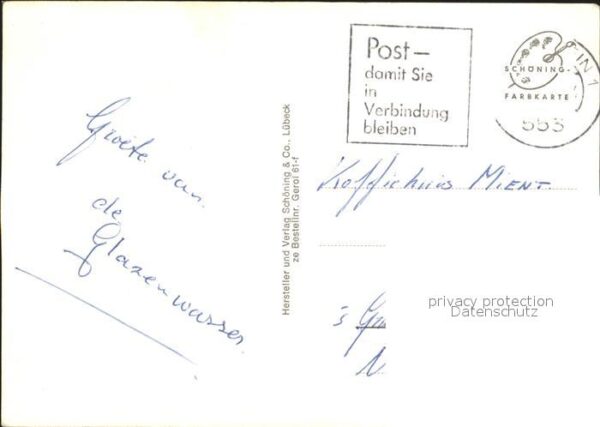 Groete van
de
Glazenwasser
Hersteller und Verlag Schöning & Co., Lübeck
ze Bestellnr. Gerol 61-f
Post –
damit Sie
in
Verbindung
bleiben
SCHÖNING-
FARBKARTE
IN 1
553
Koffiehuis MIENT
's
privacy protection
Datenschutz